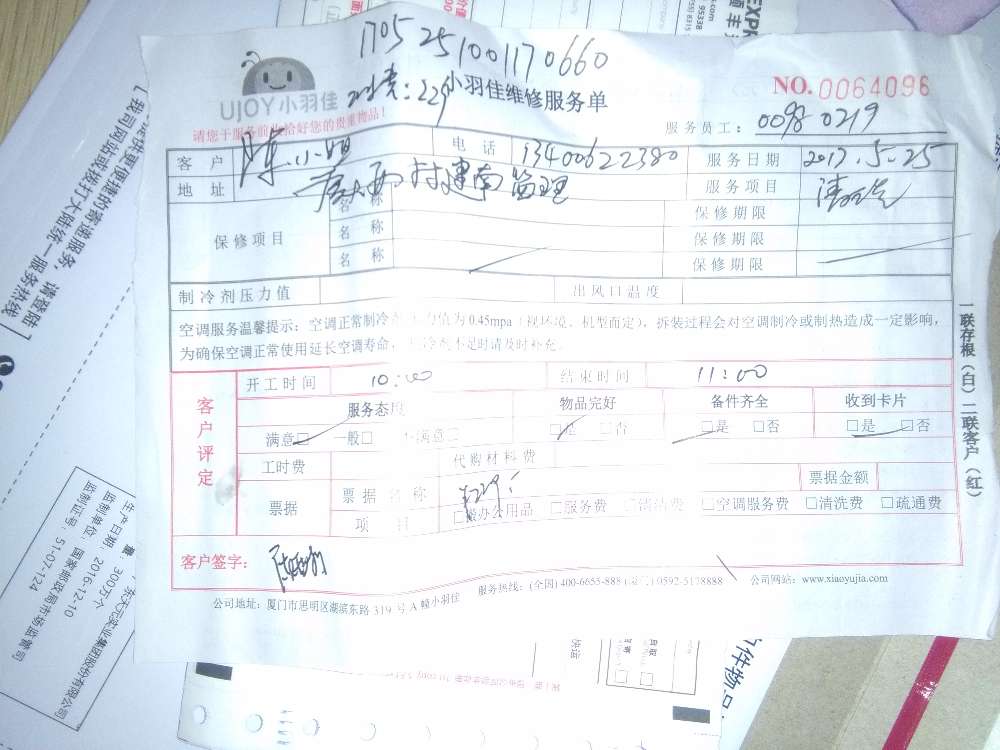 1705251001170660
UJOY小羽佳
小羽佳维修服务单
NO.0064096
请您于服务前收拾好您的贵重物品！
服务员工：0098 0219
客户 陈小姐 电话 13400622380 服务日期 2017.5.25
地址 村建南监理 服务项目
保修项目 名称 保修期限
名称 保修期限
名称 保修期限
制冷剂压力值 出风口温度
空调服务温馨提示：空调正常制冷剂压力值为0.45mpa（视环境、机型而定），拆装过程会对空调制冷或制热造成一定影响，
为确保空调正常使用延长空调寿命，制冷剂不足时请及时补充。
客户评定
开工时间 10:00 结束时间 11:00
服务态度 物品完好 备件齐全 收到卡片
满意□ 一般□ 不满意□ □是 □否 □是 □否 □是 □否
工时费 代购材料费
票据 票据名称 票据金额
项目 □搬办公用品 □服务费 □清洁费 □空调服务费 □清洗费 □疏通费
客户签字：
服务热线：(全国) 400-6655-888 0592-5178888 公司网站：www.xiaoyujia.com
公司地址：厦门市思明区湖滨东路 319 号 A 幢小羽佳
一联存根（白）二联客户（红）
生产日期：2016-12-10
监制单位：国家邮政局市场监管司
监制证号：51-07-124